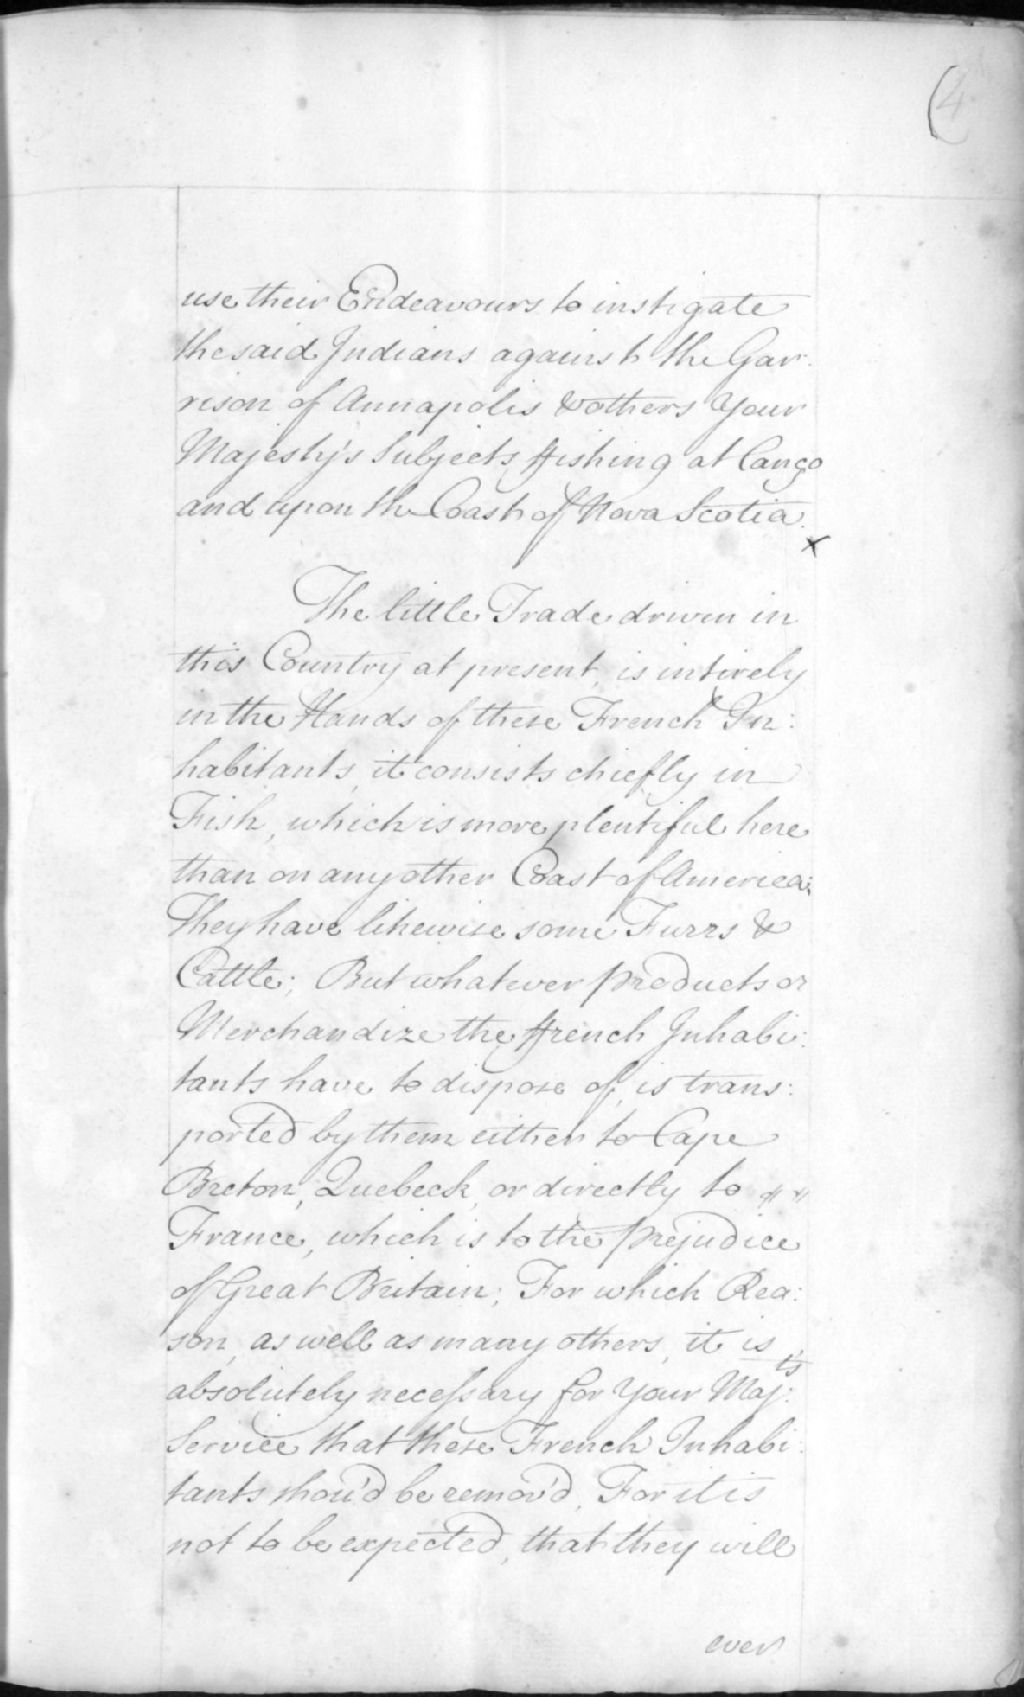 (4
use their Endeavours to instigate
the said Indians against the Gar:
rison of Annapolis & others Your
Majesty's Subjects ffishing at Canço
and upon the Coast of Nova Scotia.
x
The little Trade driven in
this Country at present, is intirely
in the Hands of these French In:
habitants, it consists chiefly in
Fish, which is more plentiful here
than on any other Coast of America;
They have likewise some Furrs &
Cattle; But whatever products or
Merchandize the ffrench Inhabi:
tants have to dispose of, is trans:
ported by them either to Cape
Breton, Quebeck, or directly to
France, which is to the prejudice
of Great Britain; For which Rea:
son, as well as many others, it is
absolutely necessary for Your Maj:ts
Service that these French Inhabi:
tants shou'd be remov'd, For it is
not to be expected, that they will
ever